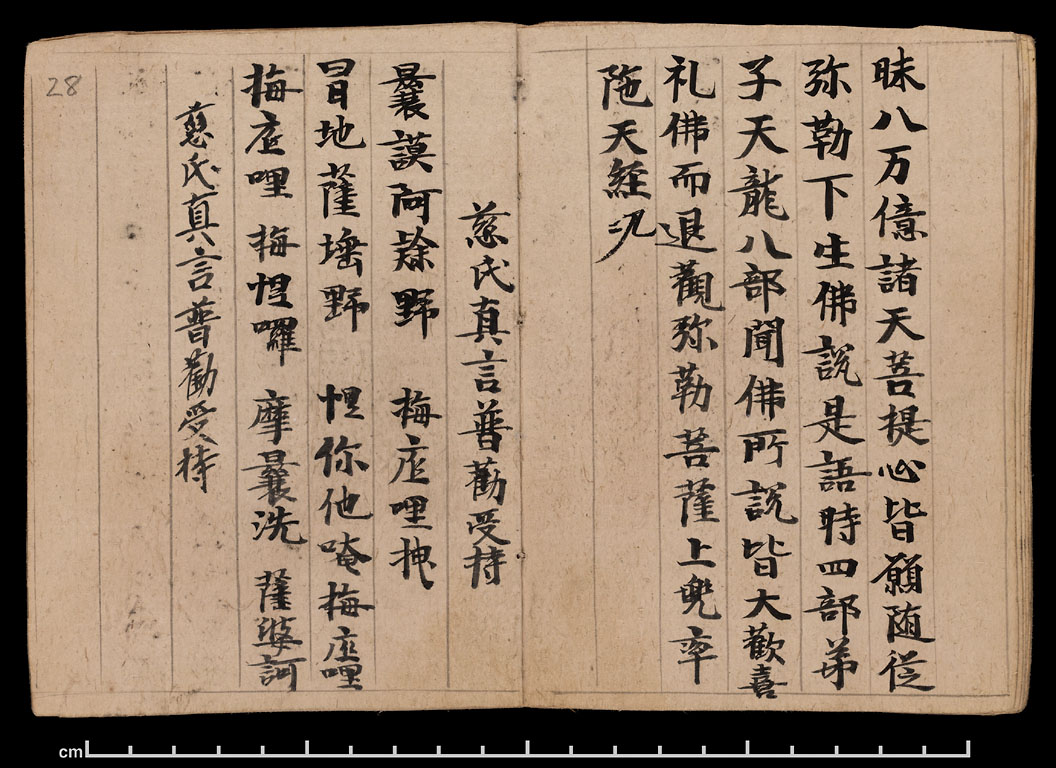 昧八万億諸天菩提心皆願随從
弥勒下生佛說是語時四部弟
子天龍八部聞佛所說皆大歡喜
礼佛而退觀弥勒菩薩上兜率
陁天經
慈氏真言普勸受持
曩謨阿餘野 梅底哩拽
冐地薩埵野 怛你他唵梅底哩
梅底哩 梅怛囉 摩曩洗 薩婆訶
慈氏真言普勸受持
28
cm